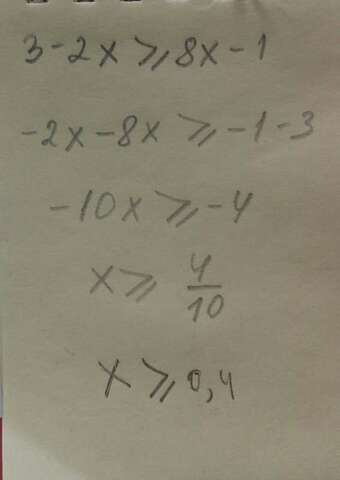 3-2x ⩾ 8x-1
-2x-8x ⩾ -1-3
-10x ⩾ -4
x ⩾ 4/10
x ⩾ 0,4